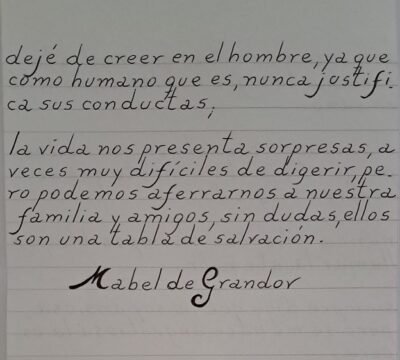 dejé de creer en el hombre, ya que
como humano que es, nunca justifi-
ca sus conductas;
la vida nos presenta sorpresas, a
veces muy difíciles de digerir, pe-
ro podemos aferrarnos a nuestra
familia y amigos, sin dudas, ellos
son una tabla de salvación.
Mabel de Grandov